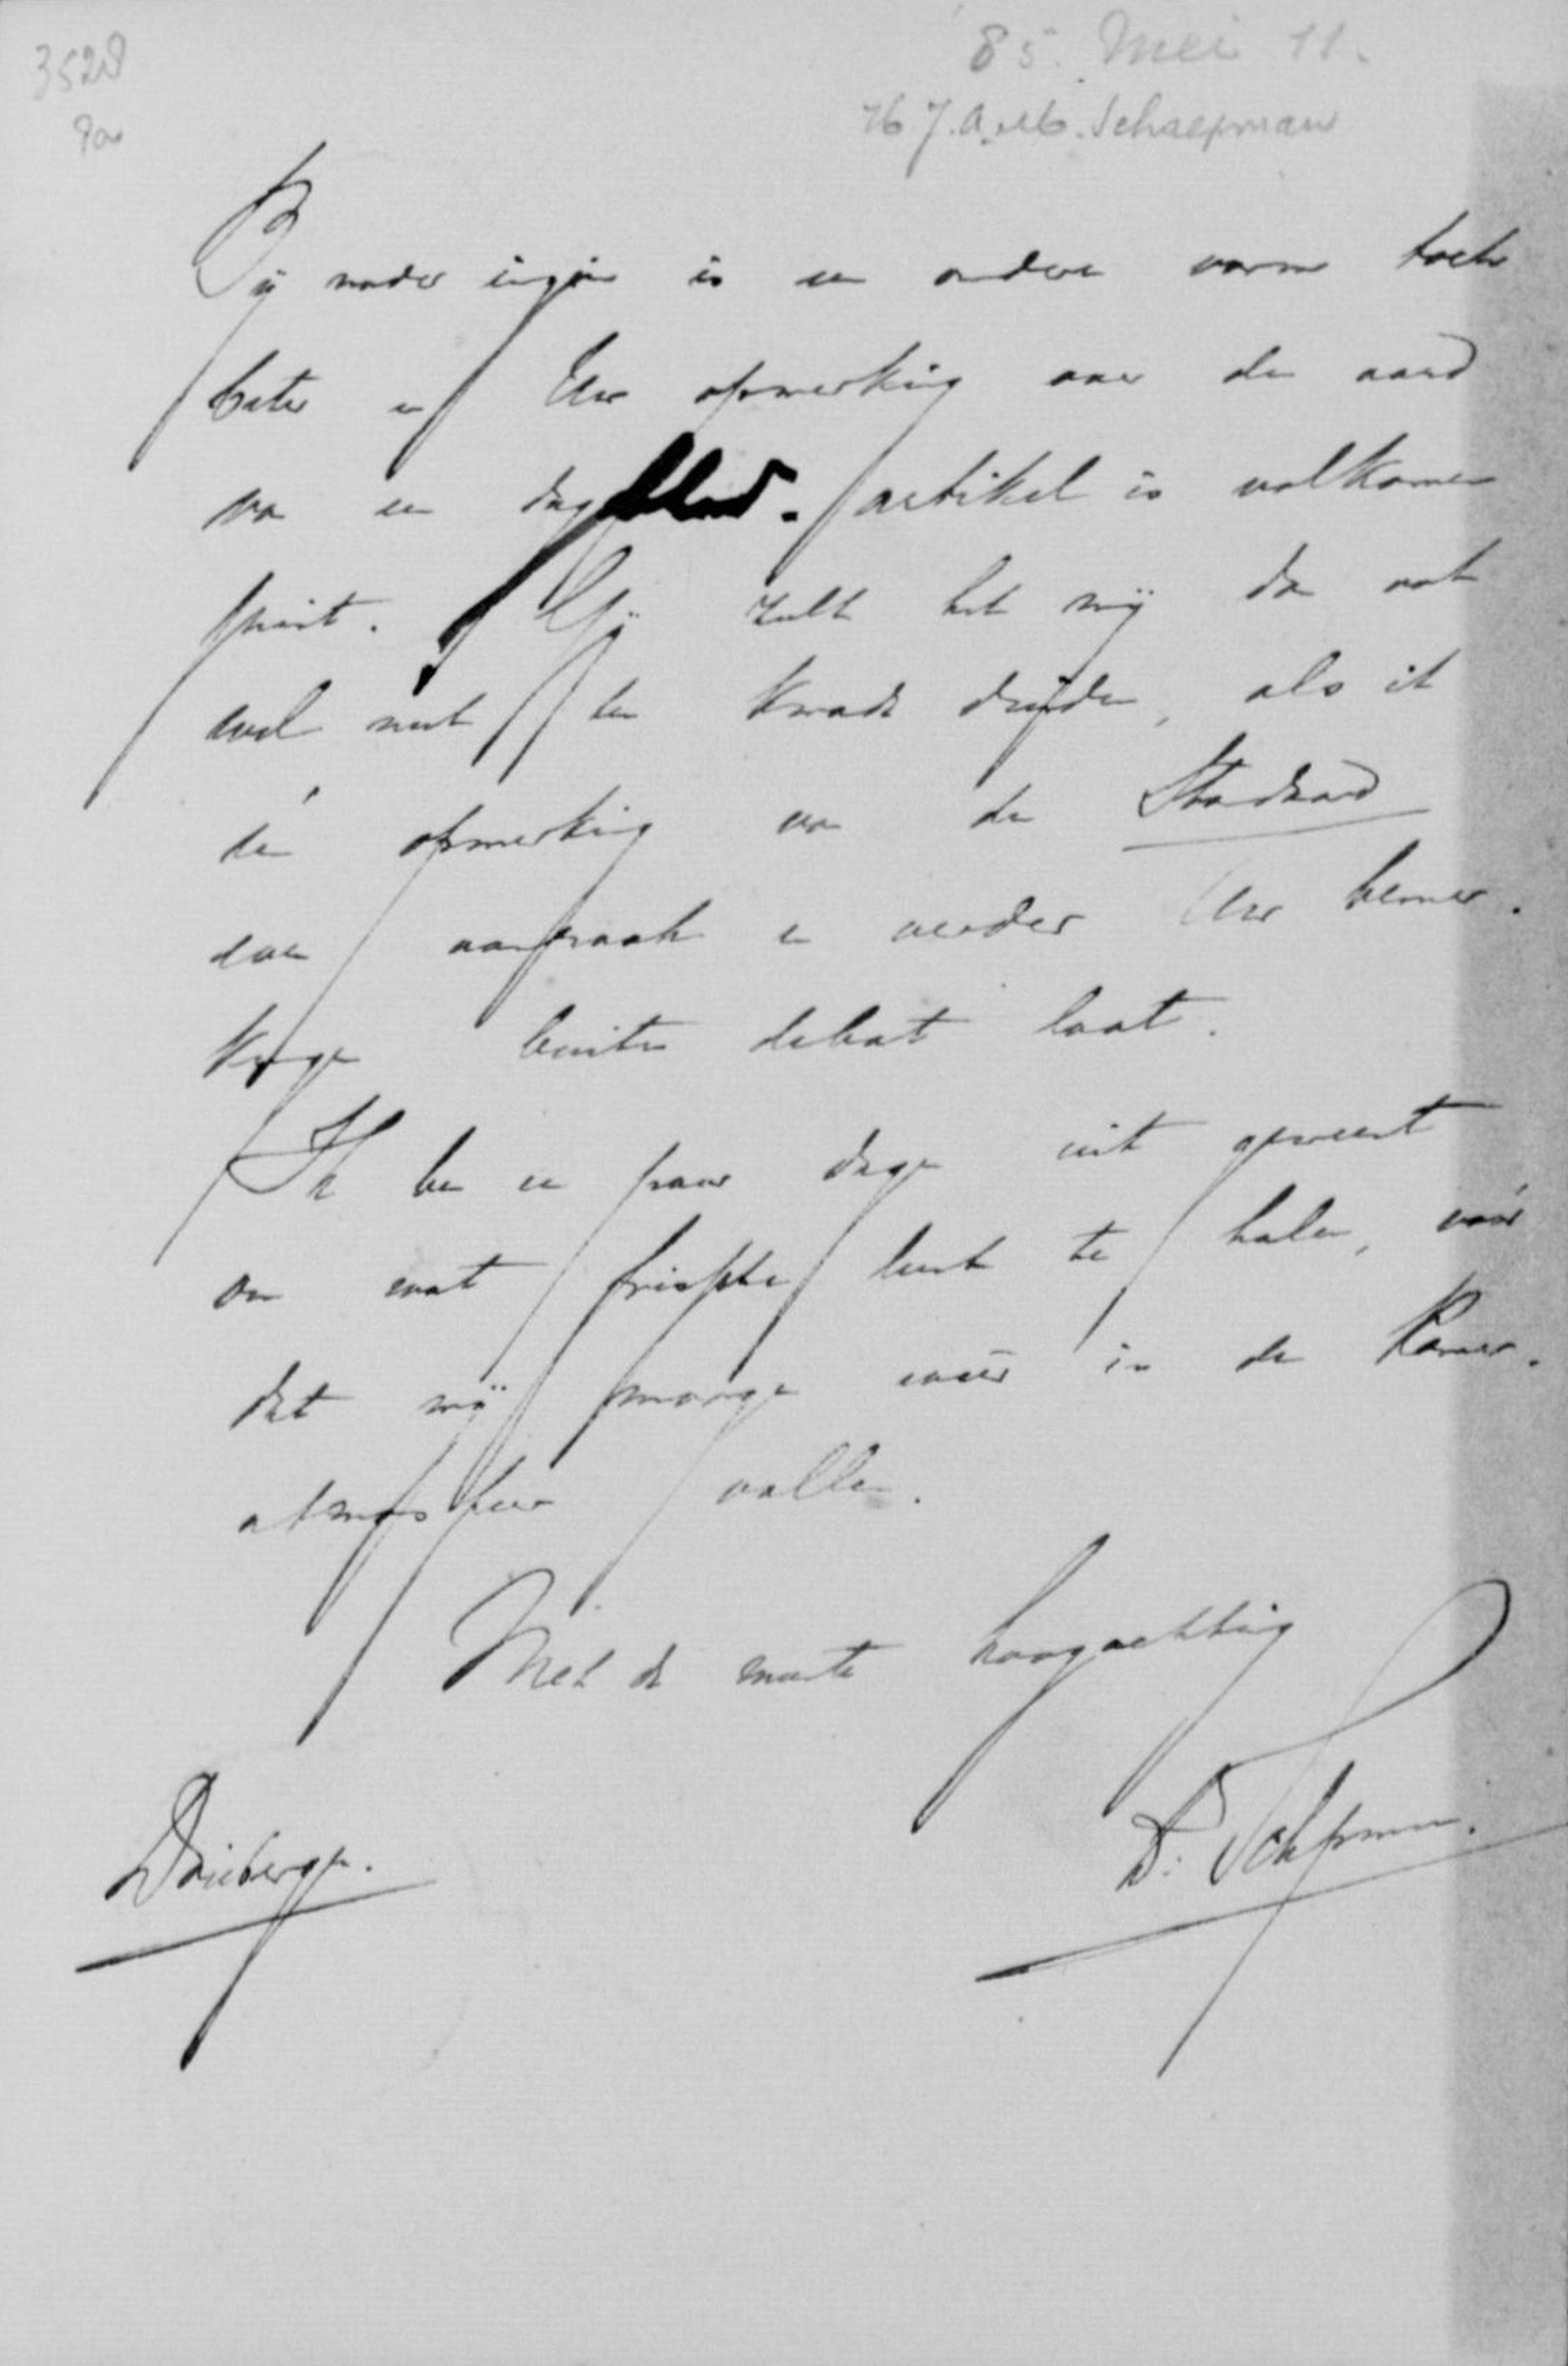 3528
85. Mei 11.
H.J.A.M. Schaepman
Bij nader inzien is een andere vorm toch
beter en Uw opmerking over den aard
van een dagblad-artikel is volkomen
juist. Gij zult het mij dan ook
wel niet ten kwade duiden, als ik
dé opmerking van de Standaard
even aanspraak en verder Uw bemer-
kingen buiten debat laat.
Ik ben een paar dagen uit geweest
om wat frissche lucht te halen, vóór
dat wij morgen weêr in de Kamer-
atmosfeer vallen.
Met de meeste hoogachting
Dr. Schpman.
Driebergen.